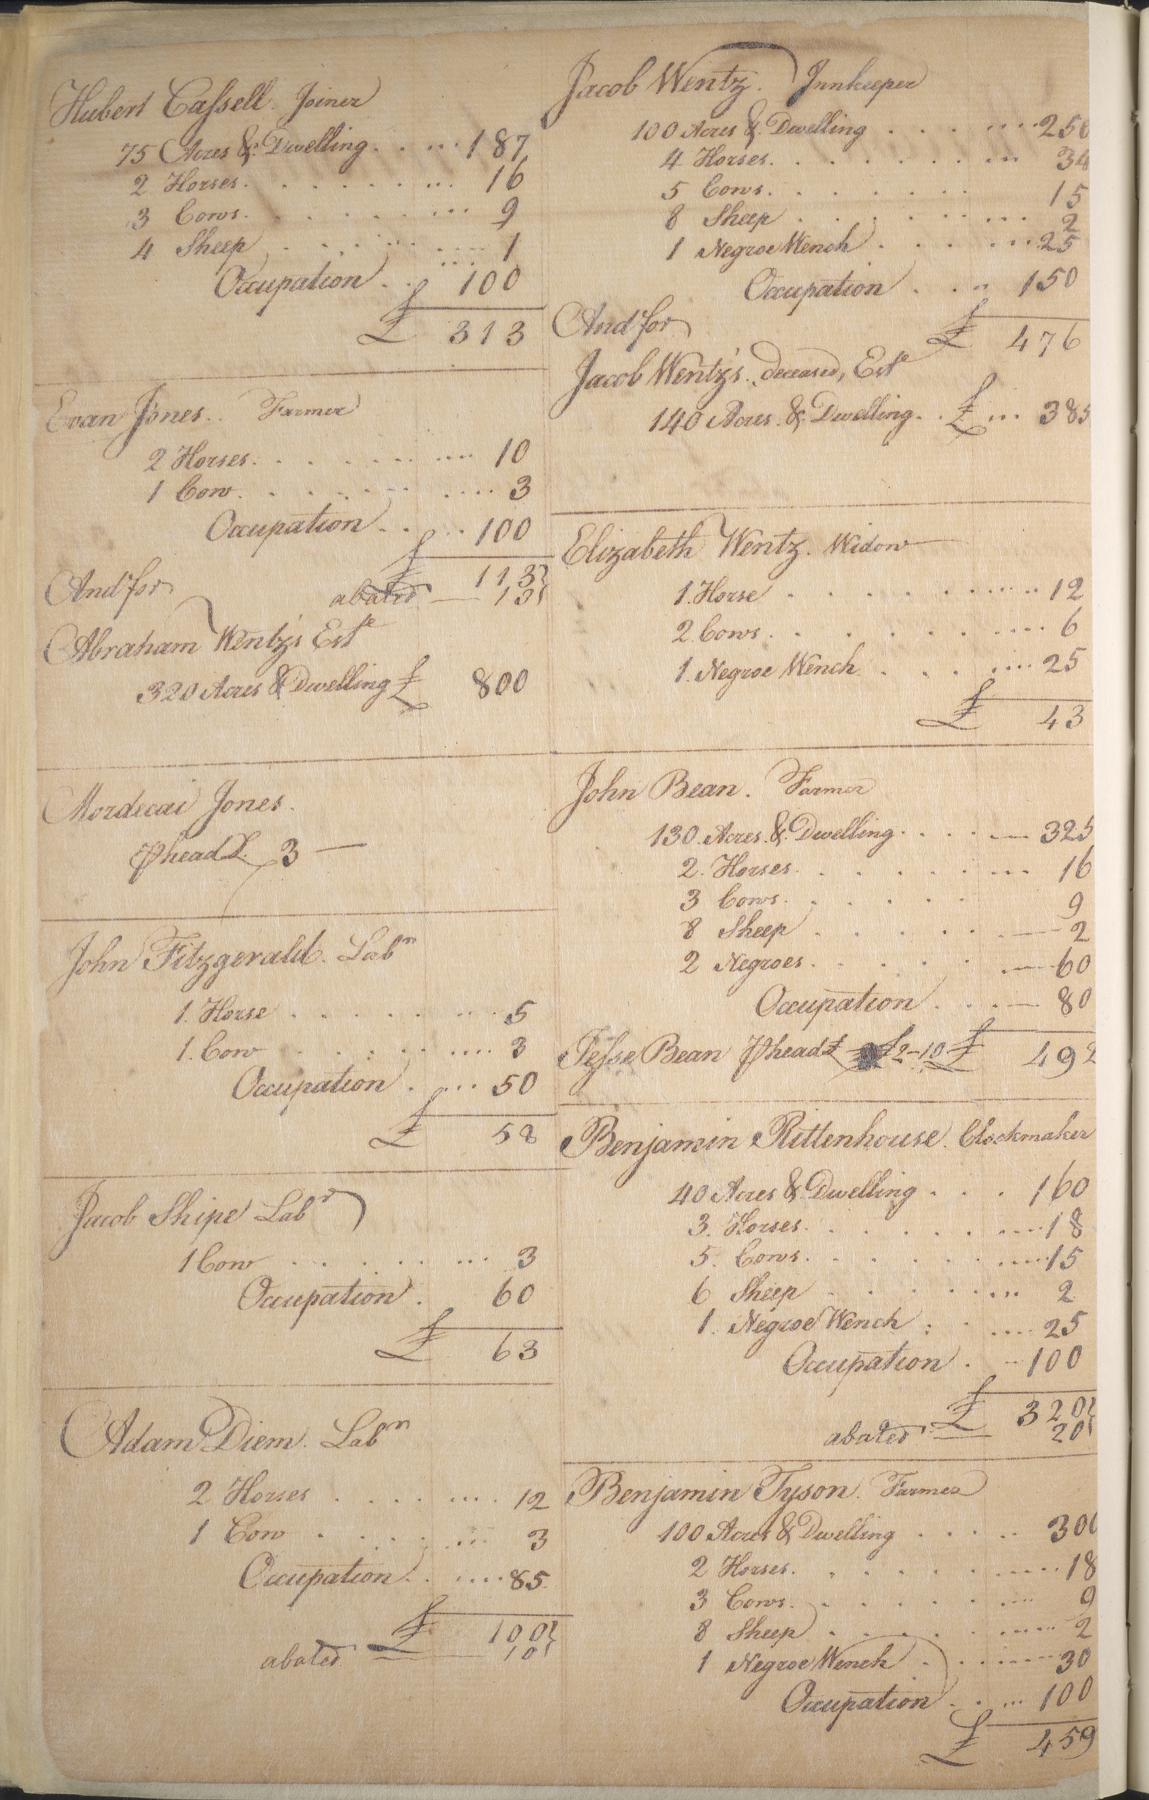 Hubert Cassell. Joiner
75 Acres & Dwelling 187
2 Horses 16
3 Cows 9
4 Sheep 1
Occupation 100
£ 313
Evan Jones. Farmer
2 Horses 10
1 Cow 3
Occupation 100
£ 113
And for abated — 13
Abraham Wentz's Est.e
320 Acres & Dwelling £ 800
Mordecai Jones.
⅌ head £ 3 —
John Fitzgerald. Lab.r
1. Horse 5
1. Cow 3
Occupation 50
£ 58
Jacob Shipe Lab.r
1 Cow 3
Occupation 60
£ 63
Adam Diem. Lab.r
2 Horses 12
1 Cow 3
Occupation 85
£ 100
abated — 10
Jacob Wentz. Innkeeper
100 Acres & Dwelling 250
4 Horses 34
5 Cows 15
8 Sheep 2
1 Negroe Wench 25
Occupation 150
And for £ 476
Jacob Wentz's deceased, Est.e
140 Acres & Dwelling £ 385
Elizabeth Wentz. Widow
1. Horse 12
2 Cows 6
1. Negroe Wench 25
£ 43
John Bean. Farmer
130 Acres & Dwelling 325
2 Horses 16
3 Cows 9
8 Sheep 2
2 Negroes 60
Occupation 80
Jesse Bean ⅌ head £ 2-10 £ 492
Benjamin Rittenhouse. Clockmaker
40 Acres & Dwelling 160
3. Horses 18
5. Cows 15
6 Sheep 2
1. Negroe Wench 25
Occupation 100
£ 320
abated — 20
Benjamin Tyson. Farmer
100 Acres & Dwelling 300
2 Horses 18
3 Cows 9
8 Sheep 2
1 Negroe Wench 30
Occupation 100
£ 459